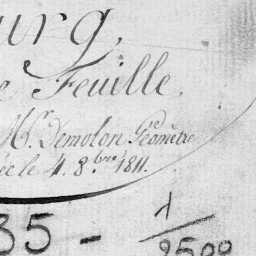 urg,
e Feuille.
Mr. Demolon Géomètre
le 4. 8.bre 1811.
35 - 1/2500